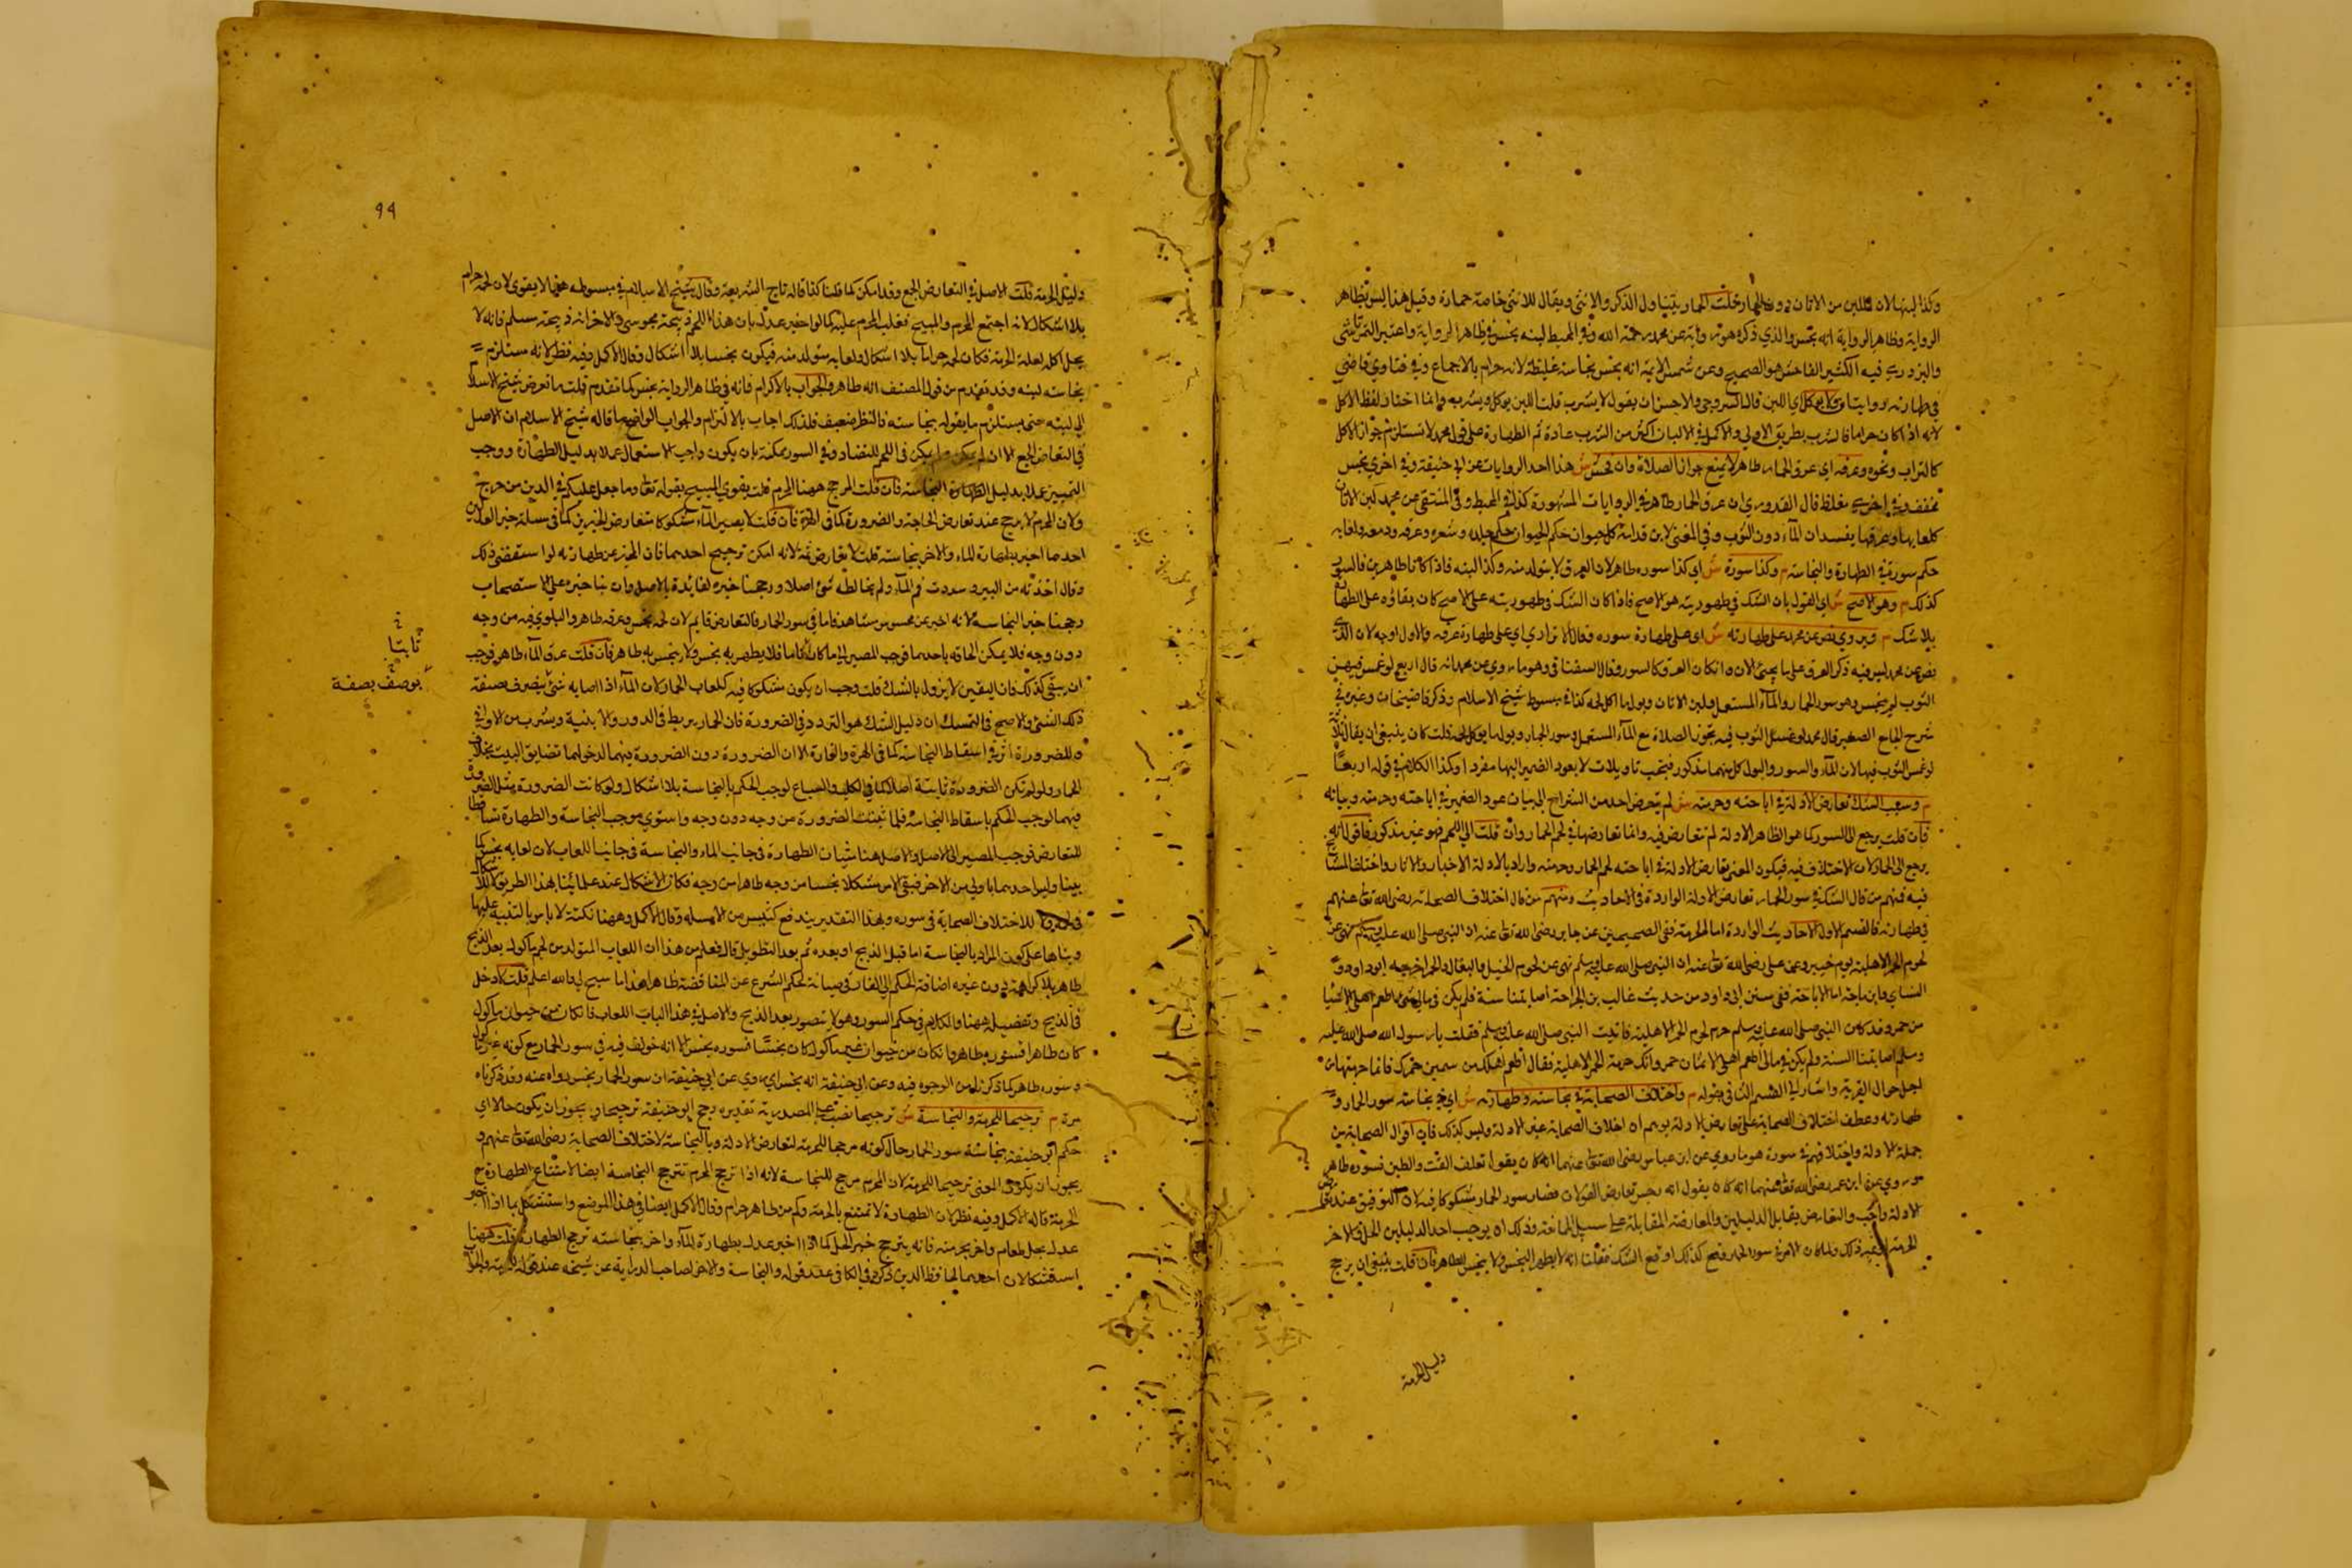 وكذا لبنها لان اللبن من الاتان دون الحمار قلت الحمار يتناول الذكر والانثى ويقال للانثى خاصة حمارة وقيل هذا ليس بظاهر
الرواية وظاهر الرواية انه نجس والذي ذكره هو رواية عن محمد رحمه الله وفي المحيط لبنه نجس في ظاهر الرواية واعتبر التمرتاشي
والبزدوي فيه الكثير الفاحش هو الصحيح وعن شمس الايمة انه نجس نجاسة غليظة لانه حرام بالاجماع وفي فتاوي قاضي
في طهارته روايتان ولا يوكل اي اللبن قال السروجي والاحسن ان يقول لا يشرب قلت اللبن يوكل ويشرب وانما اختار لفظ الاكل
لانه اذا كان حراما فالشرب بطريق الاولى والاكل في الالبان اكثر من الشرب عادة ثم الطهارة على قول محمد لا تستلزم جواز الاكل
كالتراب ونحوه وعرقه اي عرق الحمار طاهر لا يمنع جواز الصلاة وان فحش ش هذا احد الروايات عن ابي حنيفة وفي اخري نجس
مخفف وفي اخري مغلظ قال القدوري ان عرق الحمار طاهر في الروايات المشهورة كذا في المحيط وفي المنتقى عن محمد لبن الاتان
كلعابها وعرقها يفسدان الماء دون الثوب وفي المغني لابن قدامة كل حيوان حكم جلده وشعره وعرقه ودمعه ولعابه
حكم سوره في الطهارة والنجاسة م وكذا سوره ش اي كذا سوره طاهر لان العرق لا يتولد منه وكذا لبنه فاذا كانا طاهرين فالسور
كذلك م وهو الاصح ش اي القول بان الشك في طهوريته هو الاصح فاذا كان الشك في طهوريته على الاصح كان بقاؤه على الطهارة
بلا شك م ويروي نص عن محمد على طهارته ش اي على طهارة سوره وقال الاترازي اي على طهارة عرقه والاول اوجه لان الذي
نص عن محمد ليس فيه ذكر العرق على ما يجئ الان وان كان العرق كالسور وقال السغناقي وهو ما روي عن محمد انه قال اربع لو غمس فيهن
الثوب لم ينجس وهو سور الحمار والماء المستعمل ولبن الاتان وبول ما اكل لحمه كذا في مبسوط شيخ الاسلام وذكر قاضيخان وغيره في
شرح الجامع الصغير قال محمد لو غسل الثوب فيه تجوز الصلاة مع الماء المستعمل وسور الحمار وبول ما يوكل لحمه قلت كان ينبغي ان يقال ثلاثة
لو غمس الثوب فيها لان الماء والسور والبول كل منهما مذكور فيجب تاويلات لا يعود الضمير اليها مفردا وكذا الكلام في قوله اربعا
م وسبب الشك تعارض الادلة في اباحته وحرمته ش لم يتعرض احد من الشراح الى بيان عود الضمير في اباحته وحرمته وبيانه
فان قلت يرجع الى السور كما هو الظاهر الاولة لم تتعارض فيه وانما تعارضها في لحم الحمار وان قلت الى اللحم فهو غير مذكور فاقول انه
يرجع الى الحمار لان الاختلاف فيه فيكون المعنى تعارض الادلة في اباحته لحم الحمار وحرمته واراد بالادلة الاخبار والاثار واختلف المشايخ
فيه فمنهم من قال الشك في سور الحمار تعارض الادلة الواردة في الاحاديث ومنهم من قال اختلاف الصحابة رضي الله تعالى عنهم
في طهارته فالقسم الاول الاحاديث الواردة اما الحرمة ففي الصحيحين عن جابر رضي الله تعالى عنه ان النبي صلى الله عليه وسلم نهى عن
لحوم الحمر الاهلية يوم خيبر وعن علي رضي الله تعالى عنه ان النبي صلى الله عليه وسلم نهى عن لحوم الخيل والبغال والحمر اخرجه ابو داود و
النسائي وابن ماجة اما الاباحة ففي سنن ابي داود من حديث غالب بن ابجر احة اصابتنا سنة فلم يكن في مالي شئ اطعم اهلي الا شيا
من حمر وقد كان النبي صلى الله عليه وسلم حرم لحوم الحمر الاهلية فاتيت النبي صلى الله عليه وسلم فقلت يا رسول الله صلى الله عليه
وسلم اصابتنا السنة ولم يكن في مالي اطعم اهلي الا سمان حمر وانك حرمت الحمر الاهلية فقال اطعم اهلك من سمين حمرك فانما حرمتها من
اجل جوال القرية واشار الى القسم الثاني بقوله م واختلاف الصحابة في نجاسته وطهارته ش اي في نجاسة سور الحمار و
طهارته وعطف اختلاف الصحابة على تعارض الادلة يوهم ان اختلاف الصحابة غير الادلة وليس كذلك فان اقوال الصحابة من
جملة الادلة واختلافهم في سوره هو ما روي عن ابن عباس رضي الله تعالى عنهما انه كان يقول تعلف القت والطين فسوره طاهر
وروي عن ابن عمر رضي الله تعالى عنهما انه كان يقول انه رجس تعارض القولان فصار سور الحمار مشكوكا فيه لان التوفيق عند تعارض
الادلة واجب والتعارض تقابل الدليلين والمعارضة المقابلة على سبيل الممانعة وذلك ان يوجب احد الدليلين الحل والاخر
الحرمة وغير ذلك ولما كان الامر في سور الحمار وقع كذلك اوقع الشك فقلنا انه لا يطهر النجس ولا ينجس الطاهر فان قلت ينبغي ان يرجح
دليل الحرمة
٩٩
ودليل الحرمة قلت الاصل في التعارض الجمع وقد امكن كما قلنا كذا قاله تاج الشريعة وقال شيخ الاسلام في مبسوطه هذا لا يقوى لان لحمه حرام
بلا اشكال لانه اجتمع المحرم والمبيح فغلب المحرم عليه كما لو اخبر عدل بان هذا اللحم ذبيحة مجوسي والاخر انه ذبيحة مسلم فانه لا
يحل اكله لغلبة الحرمة فكان لحمه حراما بلا اشكال ولعابه متولد منه فيكون نجسا بلا اشكال وقال الاكمل وفيه نظر لانه مستلزم
نجاسة لبنه وقد تقدم من قول المصنف انه طاهر والجواب بالالزام فانه في ظاهر الرواية نجس كما تقدم قلت ما تعرض شيخ الاسلام
الى لبنه حتى يستلزم ما يقوله بنجاسته فالنظر ضعيف فلذلك اجاب بالالتزام والجواب الواضح ما قاله شيخ الاسلام ان الاصل
في التعارض الجمع الا ان لم يمكن ولم يمكن في اللحم للتضاد وفي السور يمكنه بان يكون واجب الاستعمال عملا بدليل الطهارة ووجب
التيمم عملا بدليل النجاسة فان قلت المرجح ههنا المحرم قلت يقوي المبيح بقوله تعالى وما جعل عليكم في الدين من حرج
ولان المحرم لا يرجح عند تعارض الحاجة والضرورة كما في الهرة فان قلت لا يصير الماء مشكوكا بتعارض الخبرين كما في مسئلة خبر العدلين
احدهما اخبر بطهارة الماء والاخر بنجاسته قلت لا تعارض ثمة لانه امكن ترجيح احدهما فان المخبر عن طهارته لو استقصى ذلك
وقال اخذته من البير وسددت فم الاناء ولم يخالطه شئ اصلا ورجحنا خبره لفائدة بالاصل وان بنا خبره على الاستصحاب
رجحنا خبر النجاسة لانه اخبر عن محسوس مشاهد فاما في سور الحمار فالتعارض قايم لان لحمه نجس وعرقه طاهر والبلوي فيه من وجه
دون وجه فلا يمكن الحاقه باحدهما فوجب المصير الى ما كان ثابتا فلا يطهر به نجس ولا ينجس به طاهر فان قلت عرق الماء طاهر فوجب
ان يبقى كذلك فان اليقين لا يزول بالشك قلت وجب ان يكون مشكوكا فيه كلعاب الحمار لان الماء اذا اصابه شئ ينصرف بصفته
ذلك الشئ والاصح في التمسك ان دليل الشك هو التردد في الضرورة فان الحمار يربط في الدور والابنية ويشرب من الاواني
وللضرورة اثر في اسقاط النجاسة كما في الهرة والفارة الا ان الضرورة دون الضرورة فيهما لدخولهما تضايق البيت بخلاف
الحمار ولو لم تكن الضرورة ثابتة اصلا كما في الكلب والسباع لوجب الحكم بالنجاسة بلا اشكال ولو كانت الضرورة مثل الضرورة
فيهما لوجب الحكم باسقاط النجاسة فلما ثبتت الضرورة من وجه دون وجه واستوى موجب النجاسة والطهارة تساقطا
للتعارض فوجب المصير الى الاصل والاصل هنا شيآن الطهارة في جانب الماء والنجاسة في جانب اللعاب لان لعابه نجس كما
بينا وليس احدهما باولى من الاخر فبقى الامر مشكلا نجسا من وجه طاهرا من وجه فكان الاشكال عند علمائنا بهذا الطريق لا للاشكال
في لحمه ولا للاختلاف الصحابة في سوره وبهذا التقدير يندفع كثير من الاسئلة وقال الاكمل وههنا نكتة لا باس بالتنبيه عليها
وبناها على كون المراد بالنجاسة اما قبل الذبح او بعده ثم بعد التطويل قال فعلم من هذا ان اللعاب المتولد من لحم ماكول بعد الذبح
طاهر بلا كراهة دون غيره اضافة الحكم الى الفارق صيانة لحكم الشرع عن المناقضة ظاهرا هذا ما سنح لي والله اعلم قلت لا دخل
في الذبح وتفصيله ههنا والكلام في حكم السور وهو لا يتصور بعد الذبح والاصل في هذا الباب اللعاب فان كان من حيوان ماكول
كان طاهرا فسوره طاهر وان كان من حيوان غير ماكول كان نجسا فسوره نجس الا انه خولف فيه في سور الحمار مع كونه غير ماكول
وسوره طاهر كما ذكرنا من الوجوه فيه وعن ابي حنيفة انه نجس اي روي عن ابي حنيفة ان سور الحمار نجس رواه عنه وقد ذكرناه
مرة م ترجيحا للحرمة والنجاسة ش ترجيحا نصب على المصدرية تقديره رجح ابو حنيفة ترجيحا ويجوز ان يكون حالا اي
حكم ابو حنيفة بنجاسة سور الحمار حال كونه مرجحا للحرمة لتعارض الادلة وبالنجاسة لاختلاف الصحابة رضي الله تعالى عنهم و
يجوز ان يكون المعنى ترجيحا للحرمة لان المحرم مرجح للنجاسة لانه اذا ترجح المحرم تترجح النجاسة ايضا لامتناع الطهارة مع
الحرمة قاله الاكمل وفيه نظر لان الطهارة لا تمتنع بالحرمة وكم من طاهر حرام وقال الاكمل ايضا في هذا الموضع واستشكل بما اذا اخبر
عدل بحل طعام واخر بحرمته فانه يترجح خبر الحل كما اذا اخبر عدل بطهارة الماء واخر بنجاسته ترجح الطهارة قلت ههنا
استشكالان احدهما لحافظ الدين ذكره في الكافي عند قوله والنجاسة والاخر لصاحب الدراية عن شيخه عند قوله للحرمة
ثابتا
بوصف بصفة